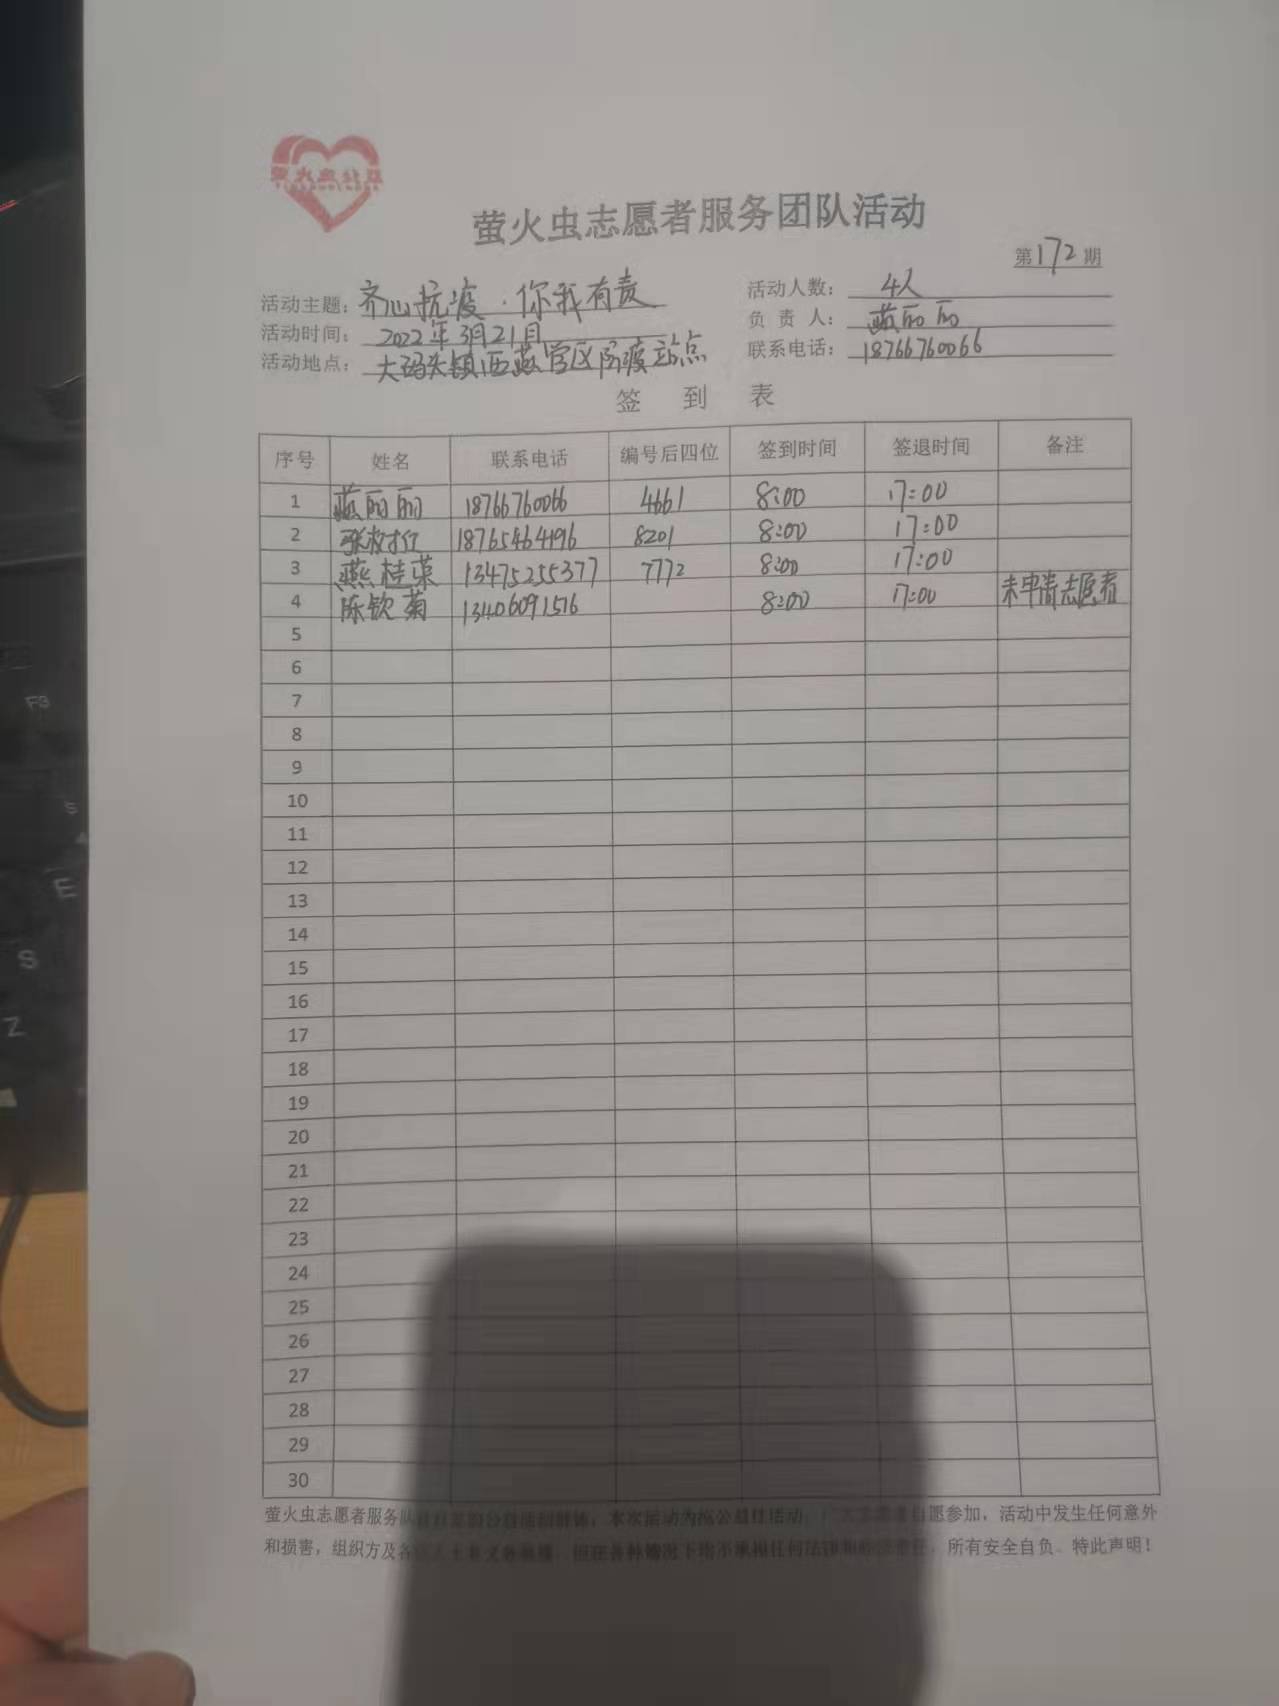 萤火虫社工
萤火虫志愿者服务团队活动
第172期
活动主题：齐心抗疫·你我有责 活动人数：4人
活动时间：2022年3月21日 负责人：燕丽丽
活动地点：大码头镇西燕学区防疫站点 联系电话：18766760066
签到表
序号 姓名 联系电话 编号后四位 签到时间 签退时间 备注
1 燕丽丽 18766760066 4661 8:00 17:00
2 张 18765464196 8201 8:00 17:00
3 燕桂荣 13475255377 7772 8:00 17:00
4 陈钦菊 13406091516 8:00 17:00 未申请志愿者
5
6
7
8
9
10
11
12
13
14
15
16
17
18
19
20
21
22
23
24
25
26
27
28
29
30
萤火虫志愿者服务队 本次活动为 公益性活动 自愿参加，活动中发生任何意外
和损害，组织方及各 但在各种情况下均不承担任何法律和 责任，所有安全自负。特此声明！
F3
5
E
S
Z